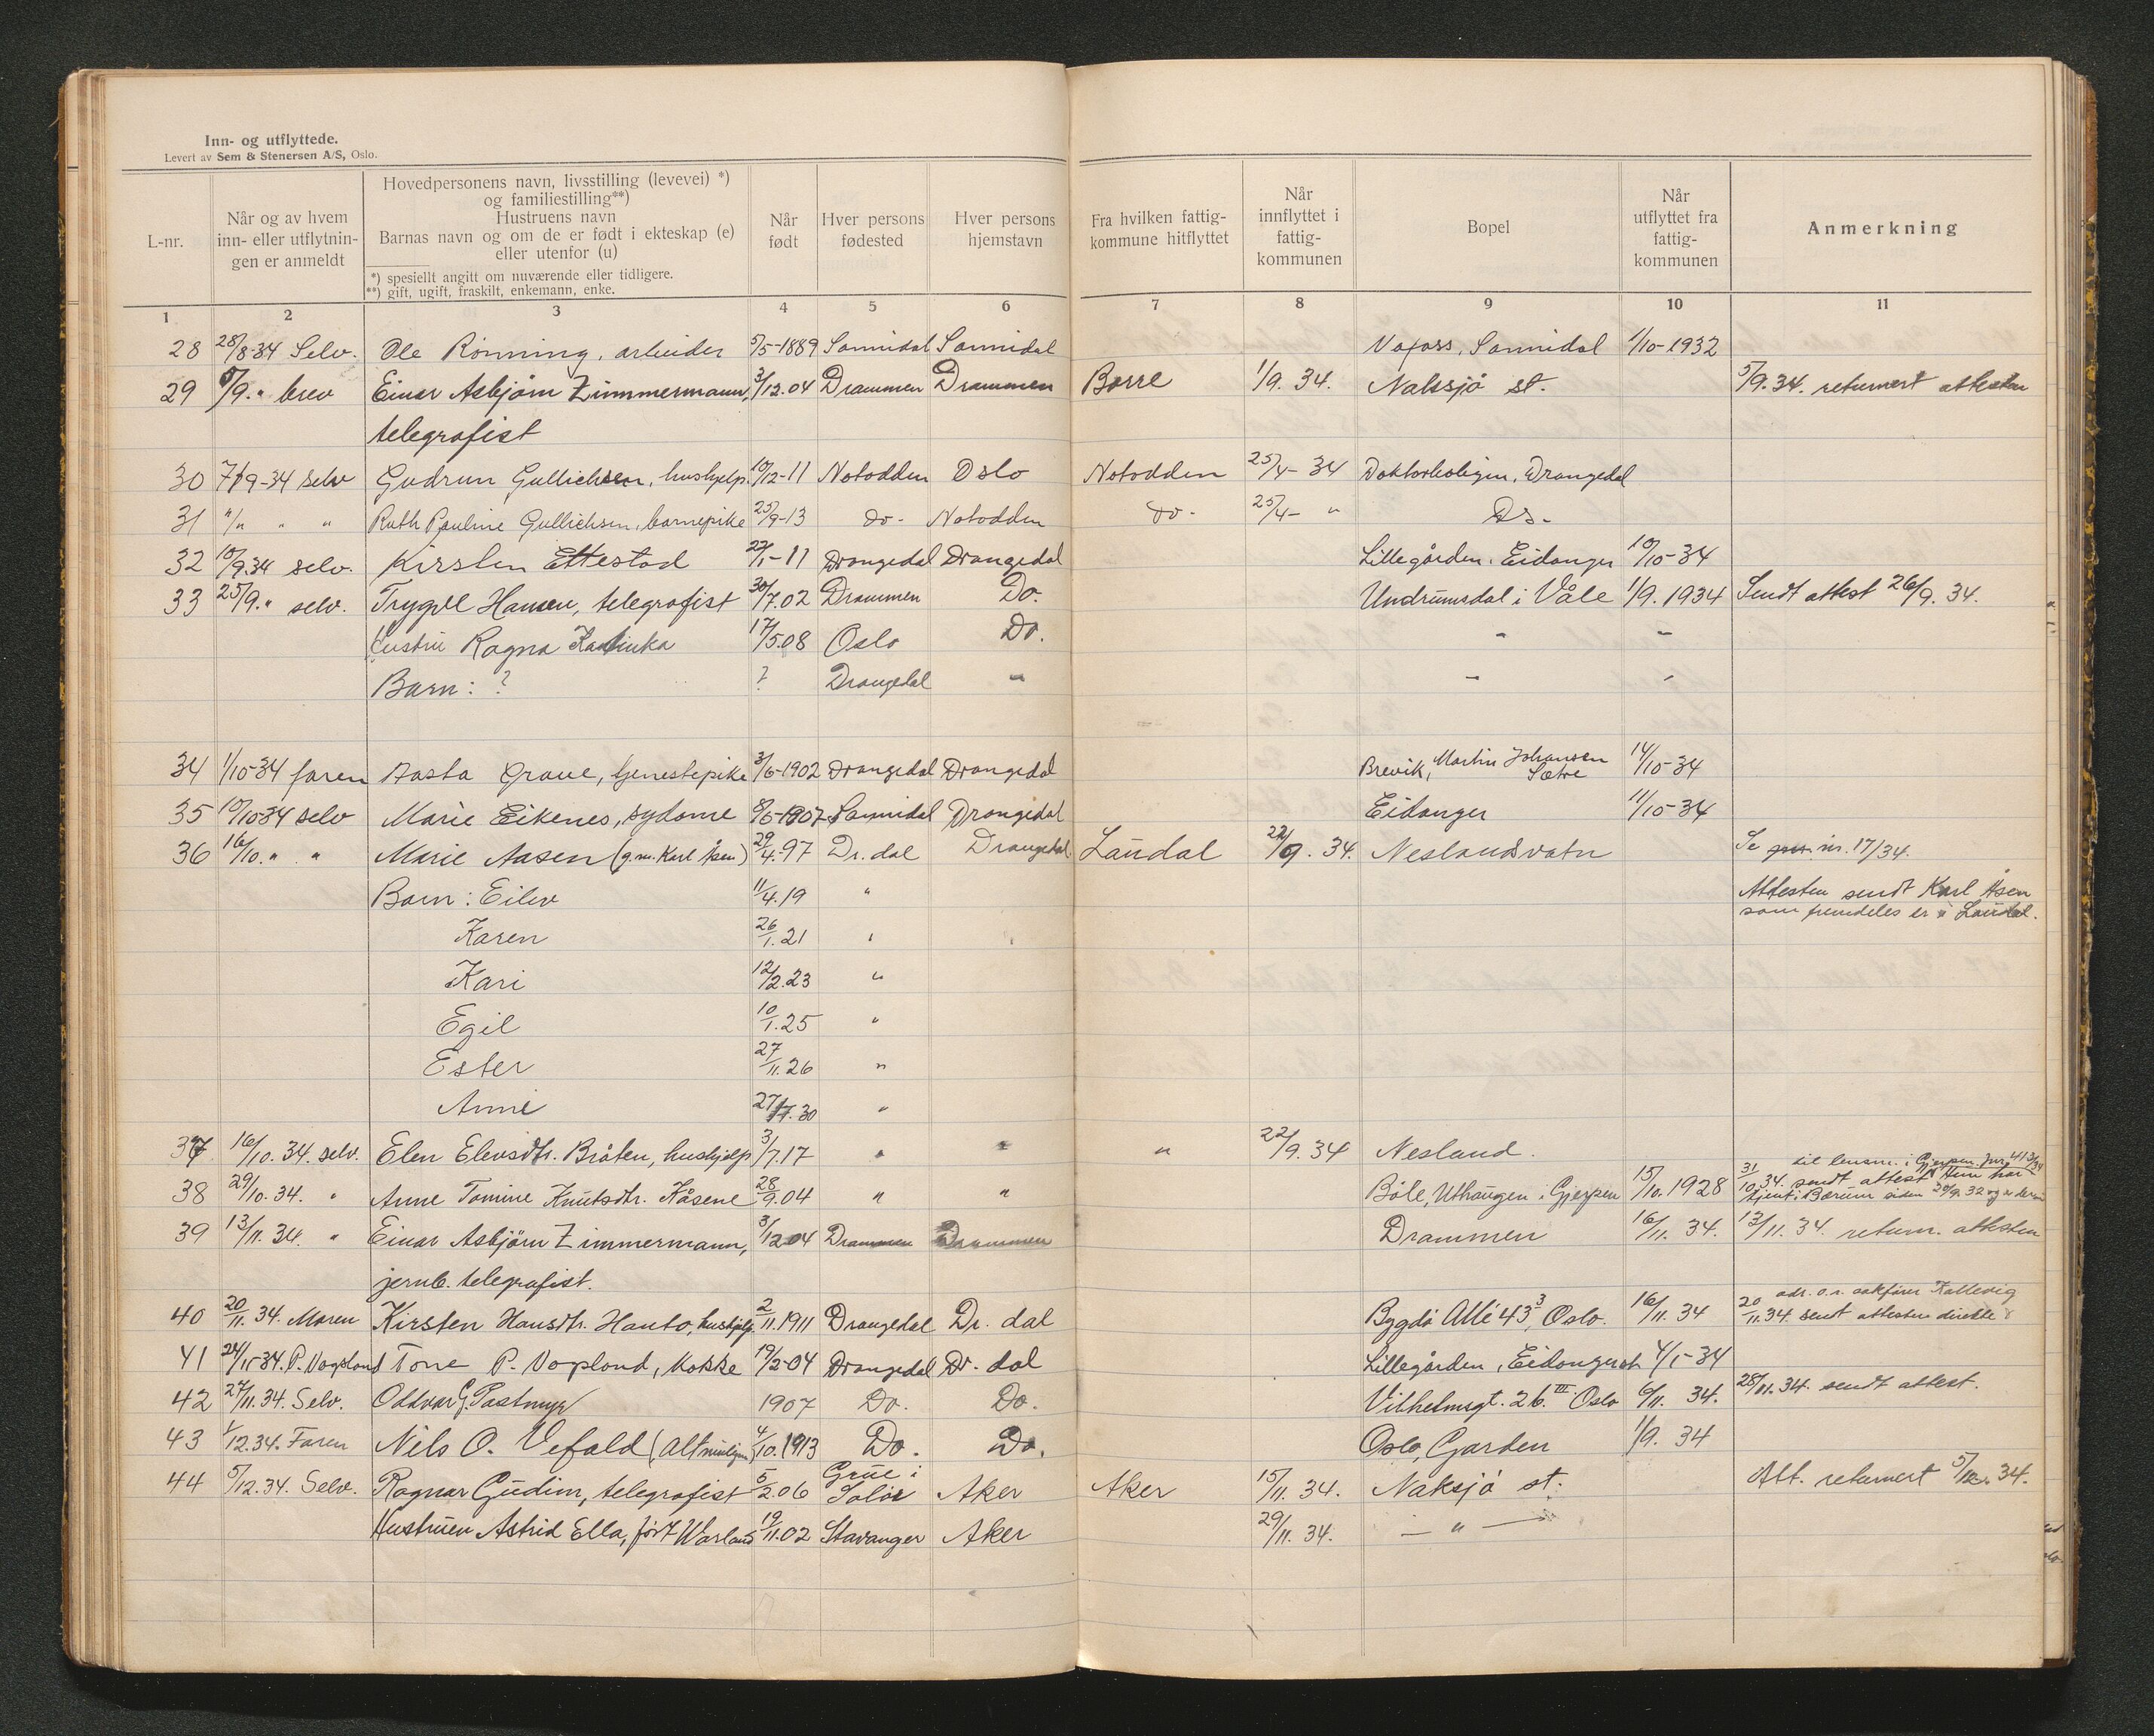 Inn- og utflyttede.
Levert av Sem & Stenersen A/S, Oslo.
L-nr.
Når og av hvem
inn- eller utflytnin-
gen er anmeldt
Hovedpersonens navn, livsstilling (levevei) *)
og familiestilling**)
Hustruens navn
Barnas navn og om de er født i ekteskap (e)
eller utenfor (u)
*) spesiellt angitt om nuværende eller tidligere.
**) gift, ugift, fraskilt, enkemann, enke.
Når
født
Hver persons
fødested
Hver persons
hjemstavn
Fra hvilken fattig-
kommune hitflyttet
Når
innflyttet i
fattig-
kommunen
Bopel
Når
utflyttet fra
fattig-
kommunen
Anmerkning
1 2 3 4 5 6 7 8 9 10 11
28 28/8-34 Selv. Ole Rönning, arbeider 5/5-1889 Sannidal Sannidal Vafoss, Sannidal 1/10-1932
29 5/9. " brev Einar Asbjörn Zimmermann, 3/12.04 Drammen Drammen Borre 1/9. 34. Nakksjö st. 5/9.34. returnert attesten
telegrafist
30 7/9-34 selv Gudrun Gullichsen, hushjelp. 10/12-11 Notodden Oslo Notodden 25/4-34 Doktorboligen, Drangedal
31 "/" " " Ruth Pauline Gullichsen, barnepike 25/9-13 do- Notodden do- 25/4- " Do-
32 10/9.34 selv. Kirsten Ettestad 22/1-11 Drangedal Drangedal Lillegården, Eidanger 10/10-34
33 25/9. " selv. Trygve Hansen, telegrafist 30/7.02 Drammen Do. Undrumsdal i Våle 1/9. 1934 Sendt attest 26/9. 34.
Hustru Ragna Katinka 17/5.08 Oslo Do. " "
Barn: ? ? Drangedal " " "
34 1/10-34 faren Aasta Grave, tjenestepike 3/6-1902 Drangedal Drangedal Brevik, Martin Johansen 14/10-34
Sætre
35 10/10-34 selv Marie Eikenes, sydame 8/6-1907 Sannidal Drangedal Eidanger 11/10-34
36 16/10. " " Marie Aasen (g.m. Karl Åsen) 29/4.-97 Dr.dal Drangedal Laudal 22/9. 34. Neslandsvatn Se nr. 17/34.
Barn: Eilev 11/4.19 " Attesten sendt Karl Åsen
som fremdeles er i Laudal.
Karen 26/1.21 "
Kari 12/2.23 "
Egil 10/1.25 "
Ester 27/11.26 "
Anne 27/7.30 "
37 16/10.34. selv. Elen Elevsdtr. Bråten, hushjelp 3/7.17 " " " 22/9.34 Nesland.
38 29/10.34. " Anne Tomine Knutsdtr. Kåsene 28/9.04 " " Böle, Uthaugen i Gjerpen 15/10.1928 31/10.34. sendt attest til lensm. i Gjerpen. Jnr. 413/34
Hun har tjent i Bærum siden 20/9.32 og er
39 13/11.34. " Einar Asbjörn Zimmermann, 3/12 04 Drammen Drammen Drammen 16/11. 34. 13/11.34. return. attesten
jernb. telegrafist.
40 20/11.34. Moren Kirsten Hansdtr. Hauto, hushjelp. 2/11.1911 Drangedal Dr. dal Bygdö Allé 43³, Oslo. 16/11. 34 adr. o.r. sakförer Kallevig
20/11.34. sent attesten direkte
41 24/11-34. P. Vogsland Tone P. Vogsland, kokke 19/2-04 Drangedal Dr. dal Lillegården, Eidanger 4/1-34
42 27/11.34. Selv. Oddvar G. Pastmyr 1907 Do. Do. Vilhelmsgt. 26. III Oslo 6/11. 34. 28/11.34. sendt attest.
43 1/12.34. Faren Nils O. Vefald (Altmuligm.) 4/10.1913 Do. Do. Oslo, Garden 1/9. 34
44 5/12.34. Selv. Ragnar Gudim, telegrafist 5/2.06 Grue i Solör Aker Aker 15/11. 34. Naksjö st. Att. returnert 5/12. 34.
Hustruen Astrid Ella, född Warland 19/11.02 Stavanger Aker 29/11. 34. — " —